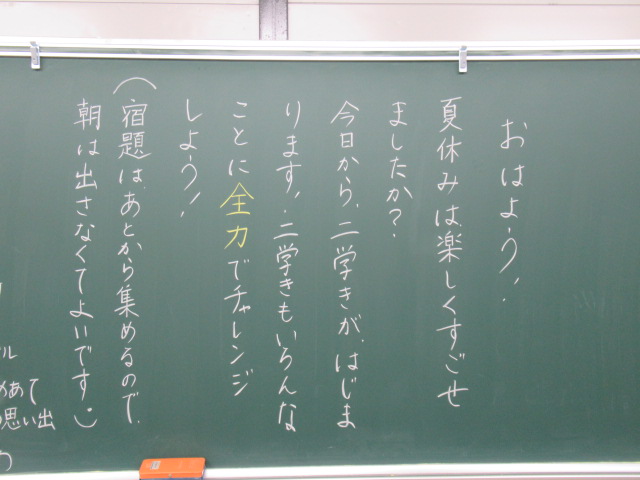 おはよう!
夏休みは、楽しくすごせ
ましたか?
今日から、二学きが、はじま
ります!二学きもいろんな
ことに全力でチャレンジ
しよう!
(宿題は、あとから集めるので、
朝は出さなくてよいです)
ル
めあて
思い出